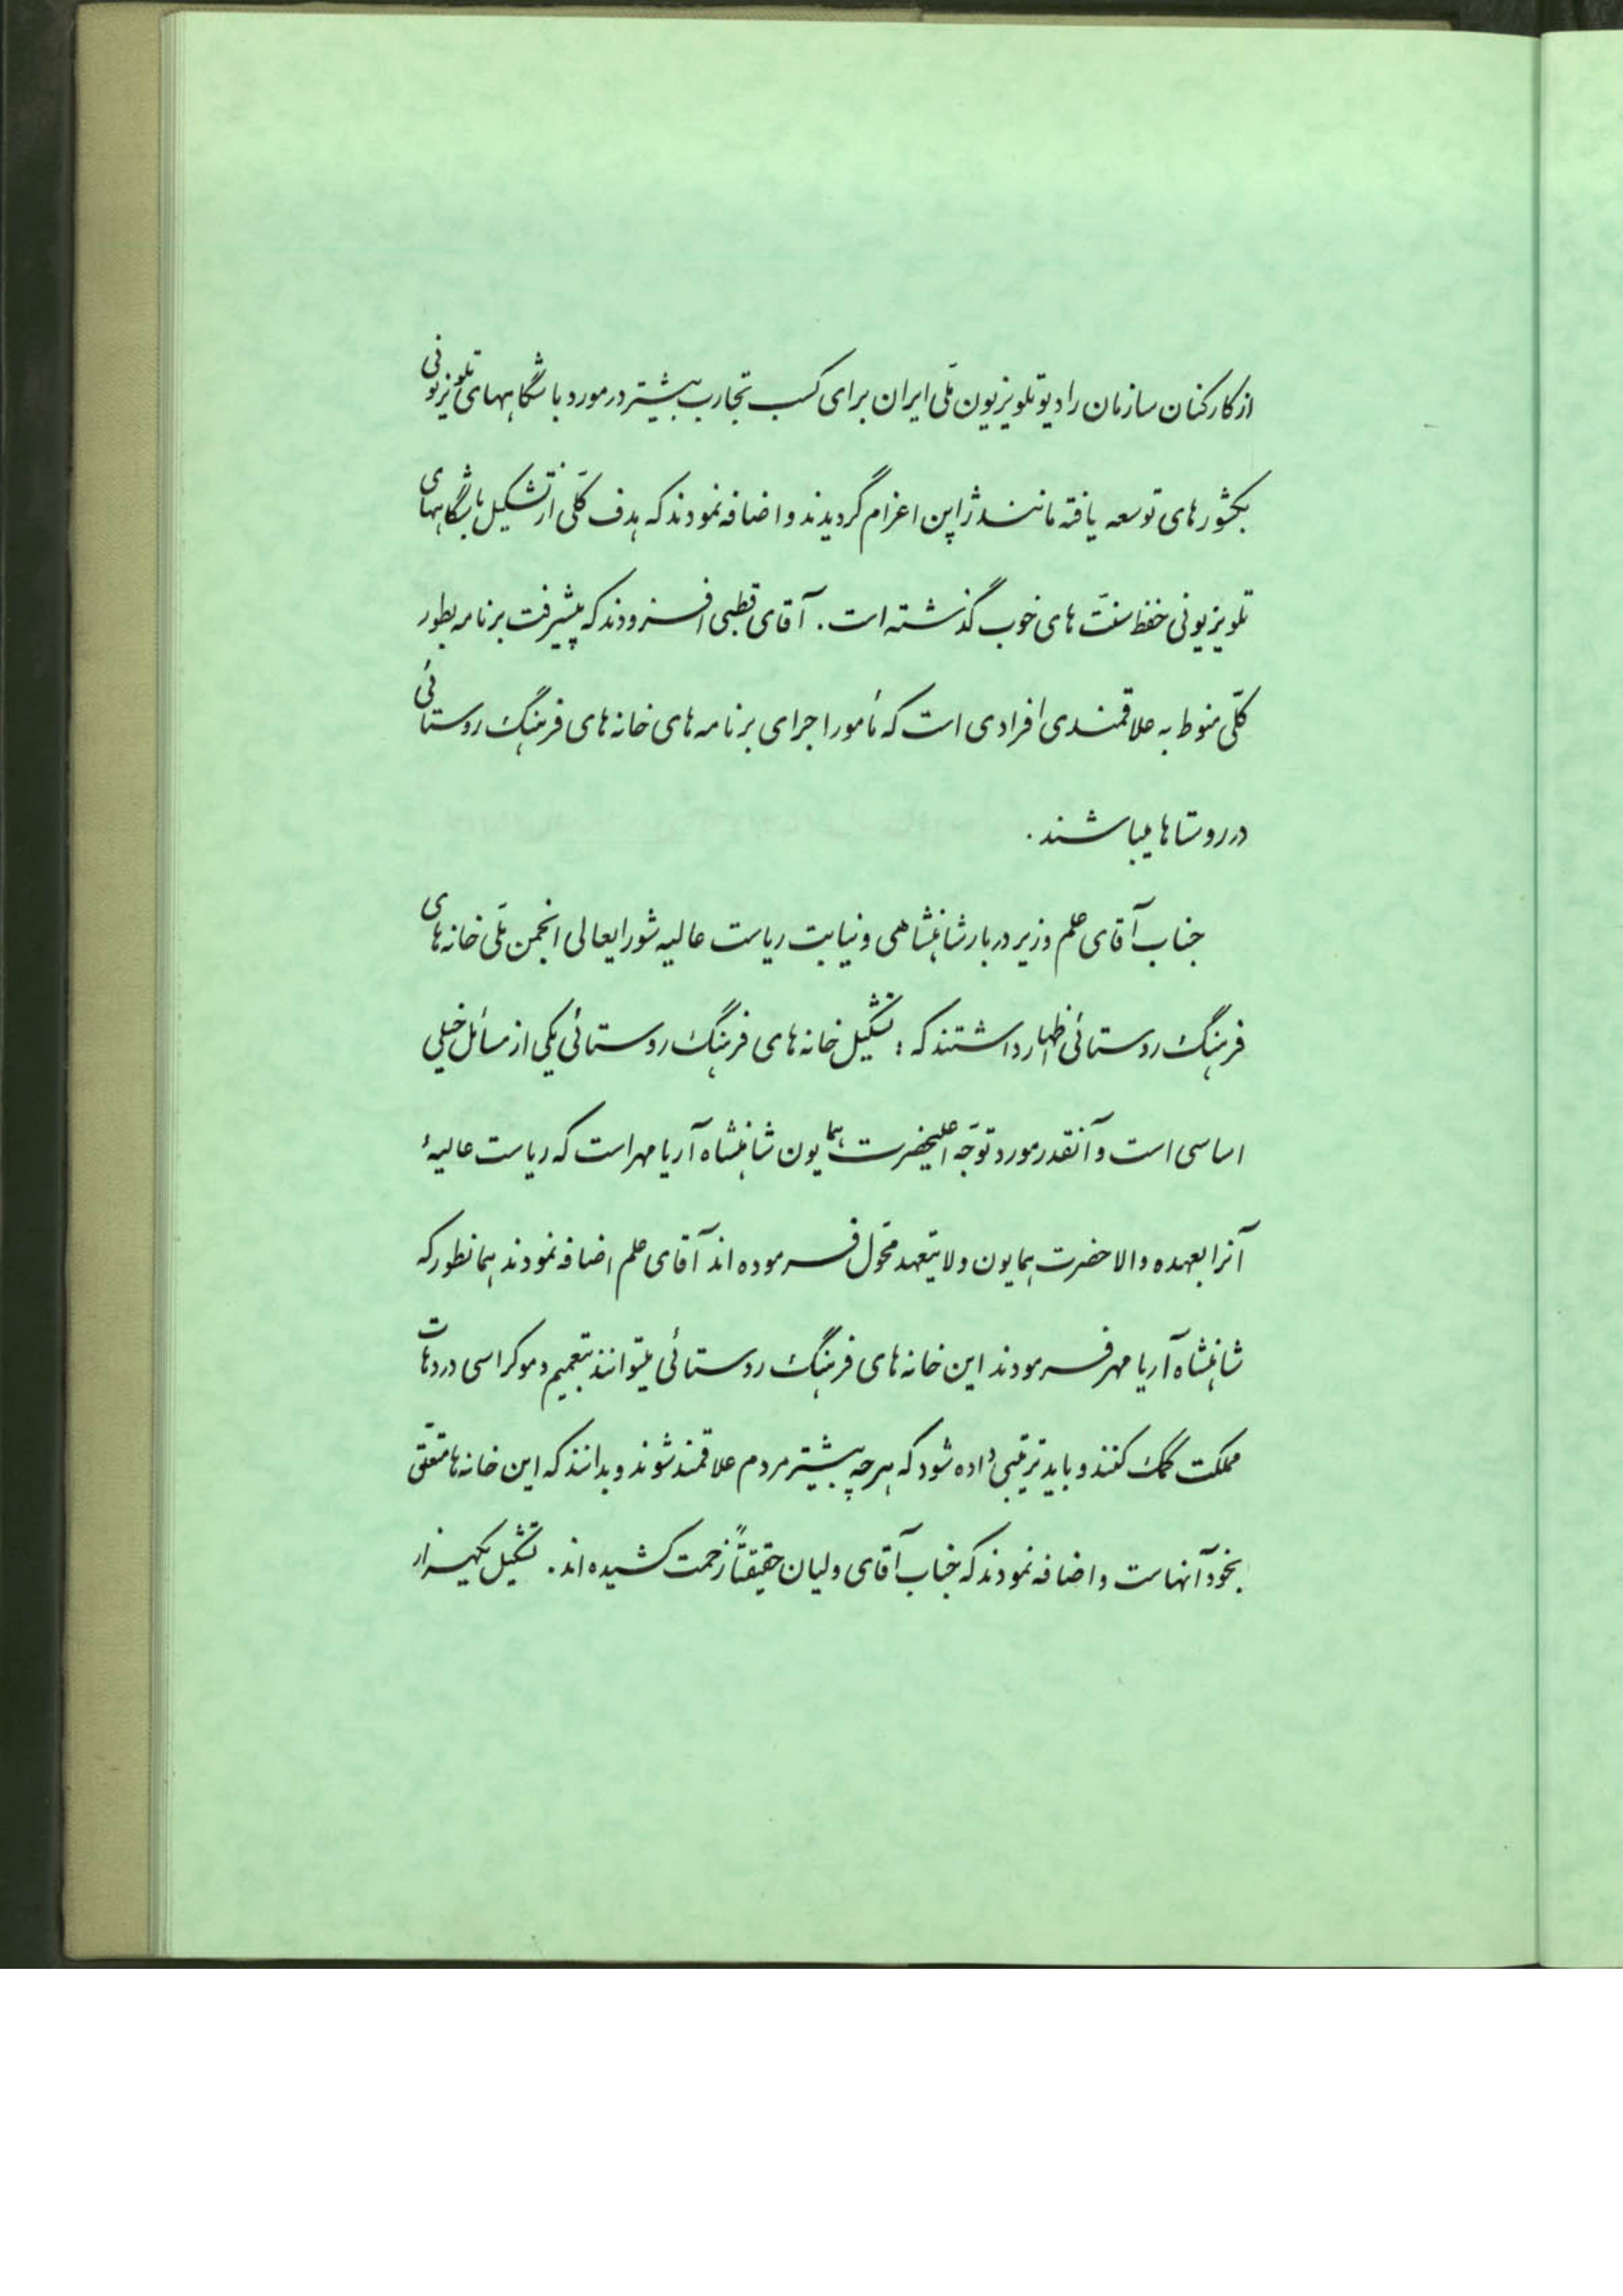 از کارکنان سازمان رادیو تلویزیون ملّی ایران برای کسب تجارب بیشتر در مورد باشگاههای تلویزیونی
بکشورهای توسعه یافته مانند ژاپن اعزام گردیدند و اضافه نمودند که هدف کلّی از تشکیل باشگاههای
تلویزیونی حفظ سنّت های خوب گذشته است. آقای قطبی افزودند که پیشرفت برنامه بطور
کلّی منوط به علاقمندی افرادی است که مأمور اجرای برنامه های خانه های فرهنگ روستائی
در روستاها میباشند.
جناب آقای علم وزیر دربار شاهنشاهی و نیابت ریاست عالیه شورایعالی انجمن ملّی خانه های
فرهنگ روستائی اظهار داشتند که : تشکیل خانه های فرهنگ روستائی یکی از مسائل خیلی
اساسی است و آنقدر مورد توجّه اعلیحضرت همایون شاهنشاه آریامهر است که ریاست عالیهٔ
آنرا بعهده والاحضرت همایون ولایتعهد محّول فرموده اند آقای علم اضافه نمودند همانطور که
شاهنشاه آریامهر فرمودند این خانه های فرهنگ روستائی میتوانند بتعمیم دموکراسی در دهات
مملکت کمک کنند و باید ترتیبی داده شود که هر چه بیشتر مردم علاقمند شوند و بدانند که این خانه ها متعّلق
بخود آنهاست و اضافه نمودند که جناب آقای ولیان حقیقتاً زحمت کشیده اند. تشکیل یکهزار